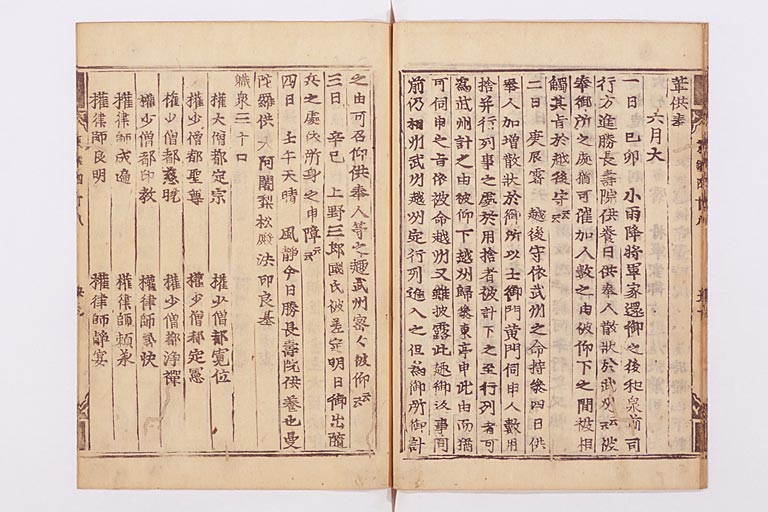 葦供奉
六月大
一日己卯　小雨降將軍家還御之後和泉前司
行方進勝長壽院供養日供奉人散狀於武州云云彼
奉御所之處猶可催加人數之由被仰下之間被相
觸其旨於越後守云云
二日庚辰霽　越後守依武州之命持參四日供
奉人加増散狀於御所以土御門黄門伺申人數用
捨并行列事之處於用捨者被計下之至行列者可
爲武州計之由被仰下越州歸參東亭申此由而猶
可伺申之旨依被命越州又雖披露此趣御沙事同
前仍相州武州越州定行列進入之但爲御所御計
之由可召仰供奉人等之趣武州密々被仰云云
三日　辛巳　上野三郎國氏被差定明日御出隨
兵之處依所身之申障云云
四日　壬午天晴　風靜今日勝長壽院供養也曼
陀羅供大阿闍梨松殿法印良基
職衆三十口
權大僧都定宗　權少僧都寛位
權少僧都聖尊　權少僧都定憲
權少僧都慈暁　權少僧都淨禪
權少僧都印教　權律師　快
權律師成遍　權律師頼兼
權律師良明　權律師靜宴